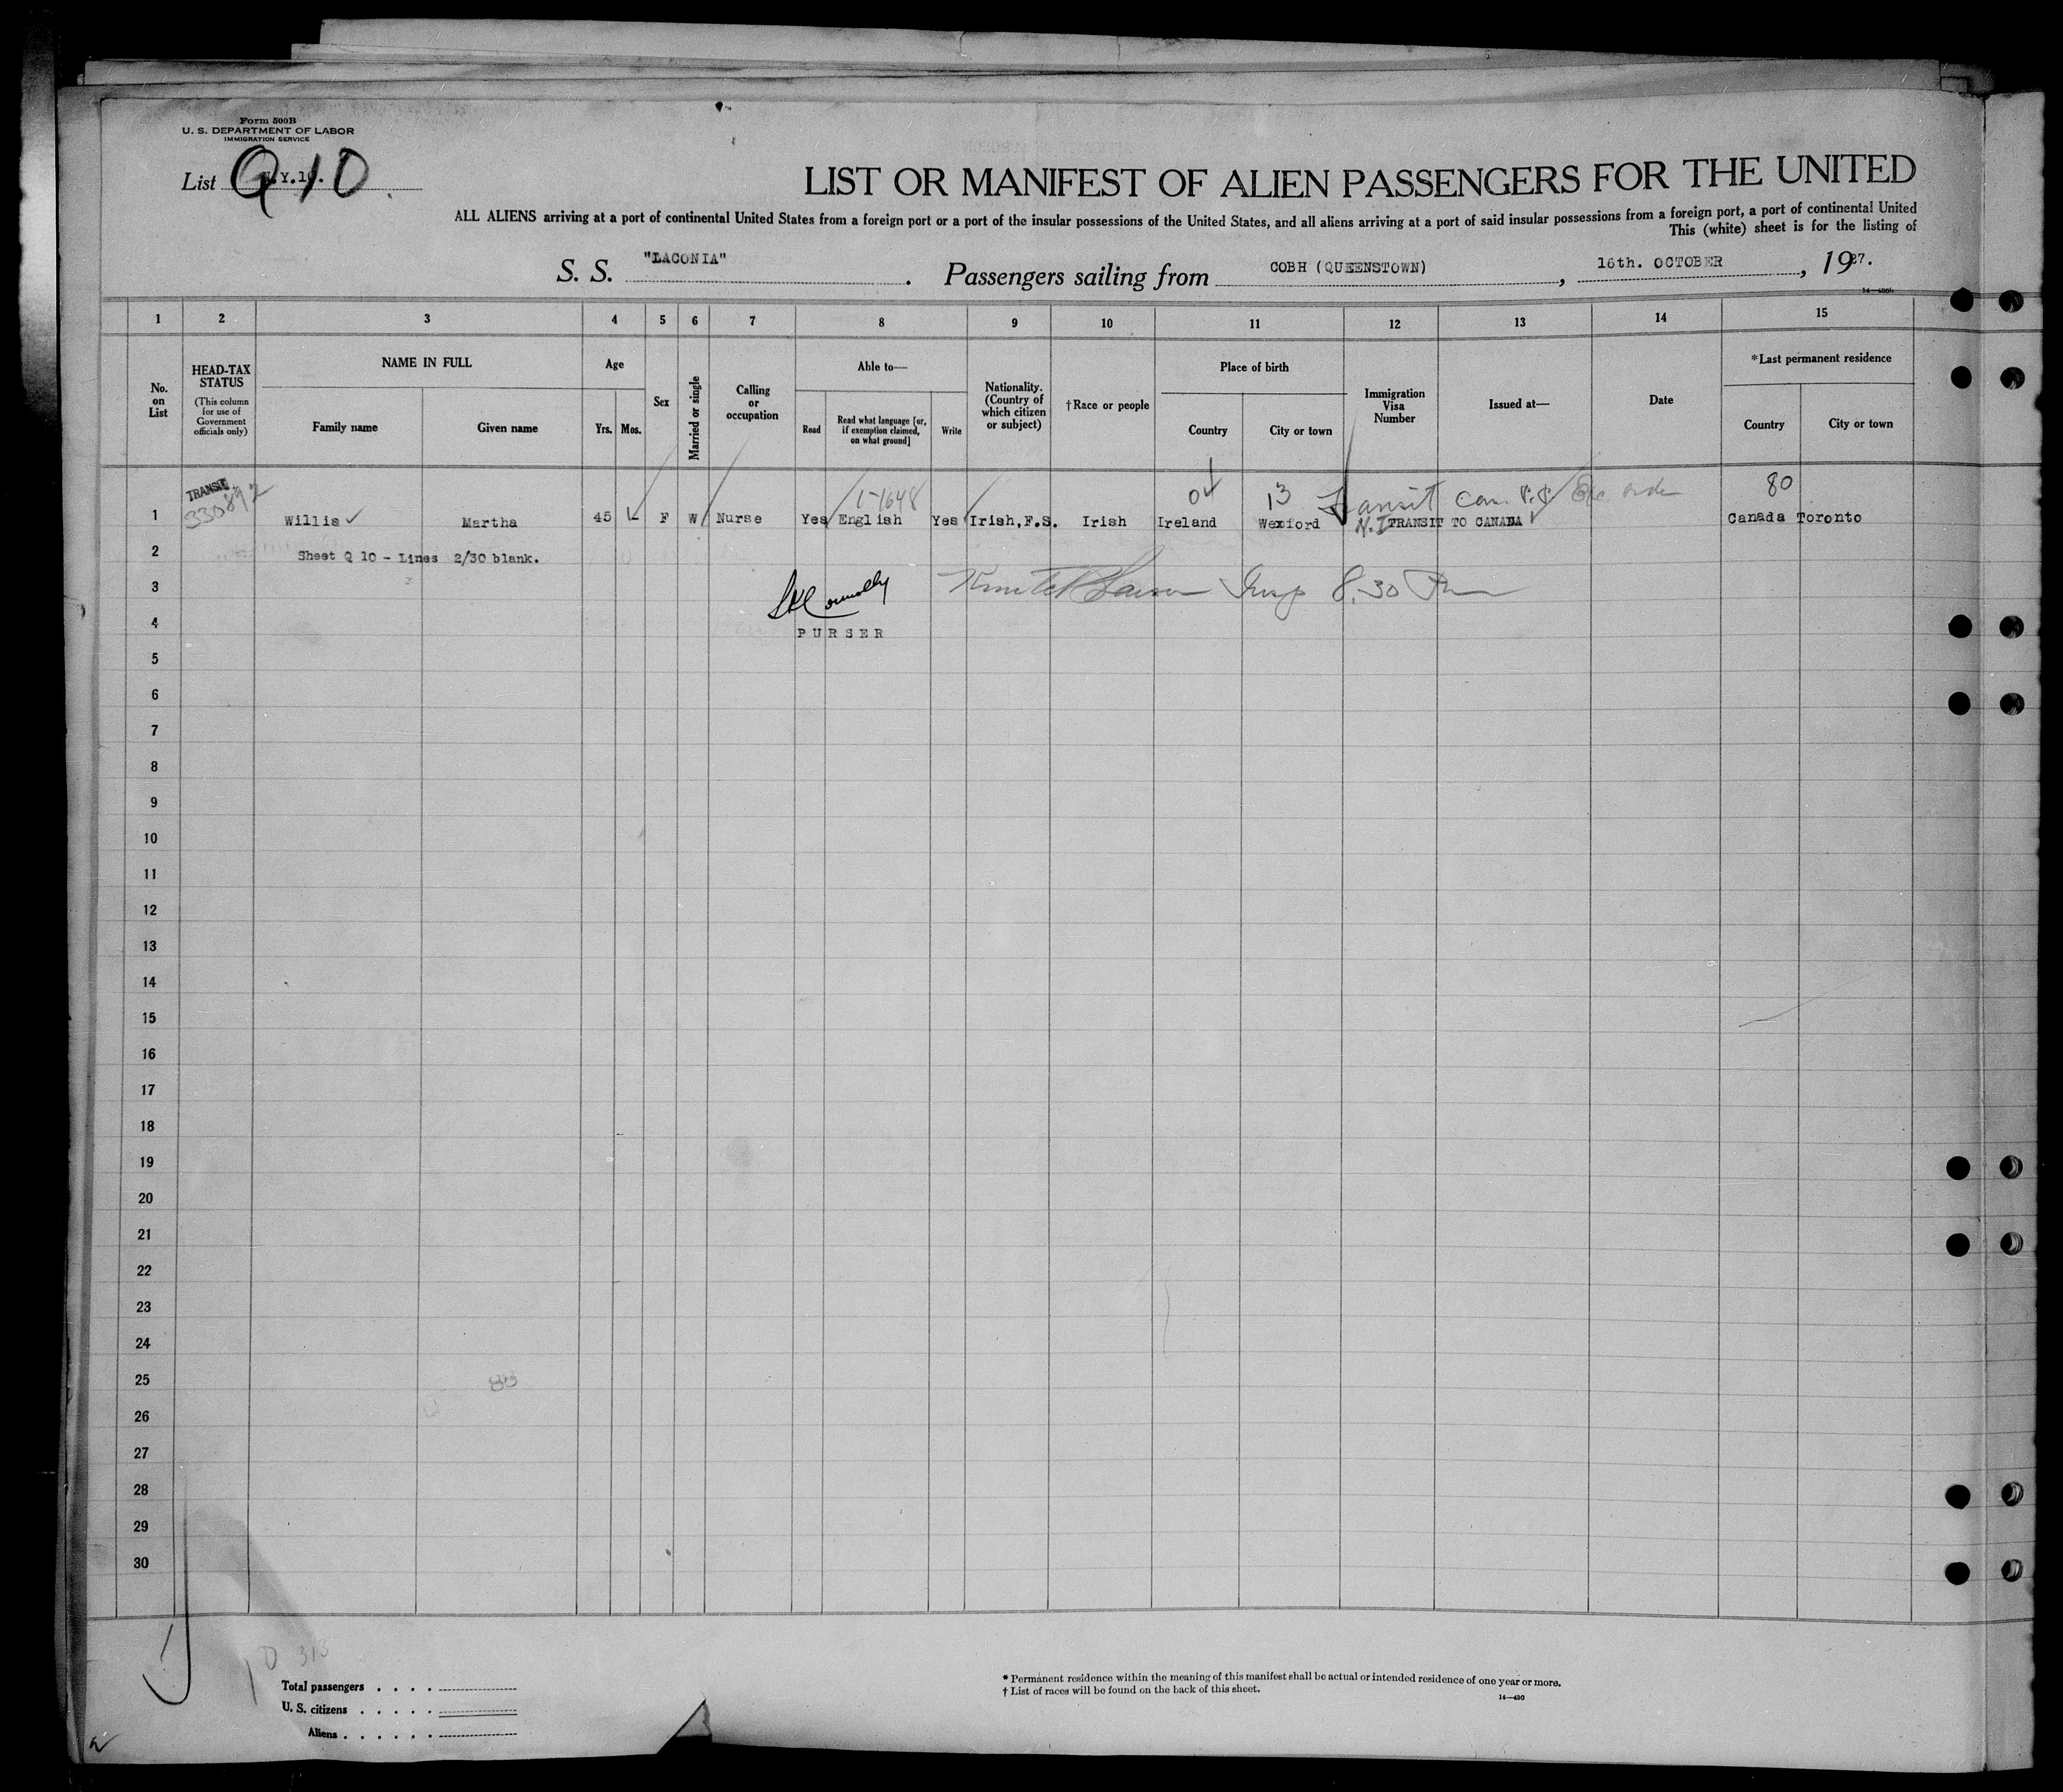 Form 500B
U. S. DEPARTMENT OF LABOR
IMMIGRATION SERVICE
List Q 10
LIST OR MANIFEST OF ALIEN PASSENGERS FOR THE UNITED
ALL ALIENS arriving at a port of continental United States from a foreign port or a port of the insular possessions of the United States, and all aliens arriving at a port of said insular possessions from a foreign port, a port of continental United
This (white) sheet is for the listing of
S. S. "LACONIA" . Passengers sailing from COBH (QUEENSTOWN) , 16th. OCTOBER , 1927.
1 2 3 4 5 6 7 8 9 10 11 12 13 14 15
No. on List
HEAD-TAX STATUS
(This column for use of Government officials only)
NAME IN FULL
Family name
Given name
Age
Yrs.
Mos.
Sex
Married or single
Calling or occupation
Able to—
Read
Read what language [or, if exemption claimed, on what ground]
Write
Nationality. (Country of which citizen or subject)
†Race or people
Place of birth
Country
City or town
Immigration Visa Number
Issued at—
Date
*Last permanent residence
Country
City or town
TRANSIT
330892
5-1648
13
Transit
80
1 Willis Martha 45 F W Nurse Yes English Yes Irish,F.S. Irish Ireland Wexford TRANSIT TO CANADA Canada Toronto
2 Sheet Q 10 - Lines 2/30 blank.
3
8.30
4 PURSER
5
6
7
8
9
10
11
12
13
14
15
16
17
18
19
20
21
22
23
24
25
26
27
28
29
30
Total passengers . . . .
U. S. citizens . . . . .
Aliens . . . . . .
* Permanent residence within the meaning of this manifest shall be actual or intended residence of one year or more.
† List of races will be found on the back of this sheet.
14—430